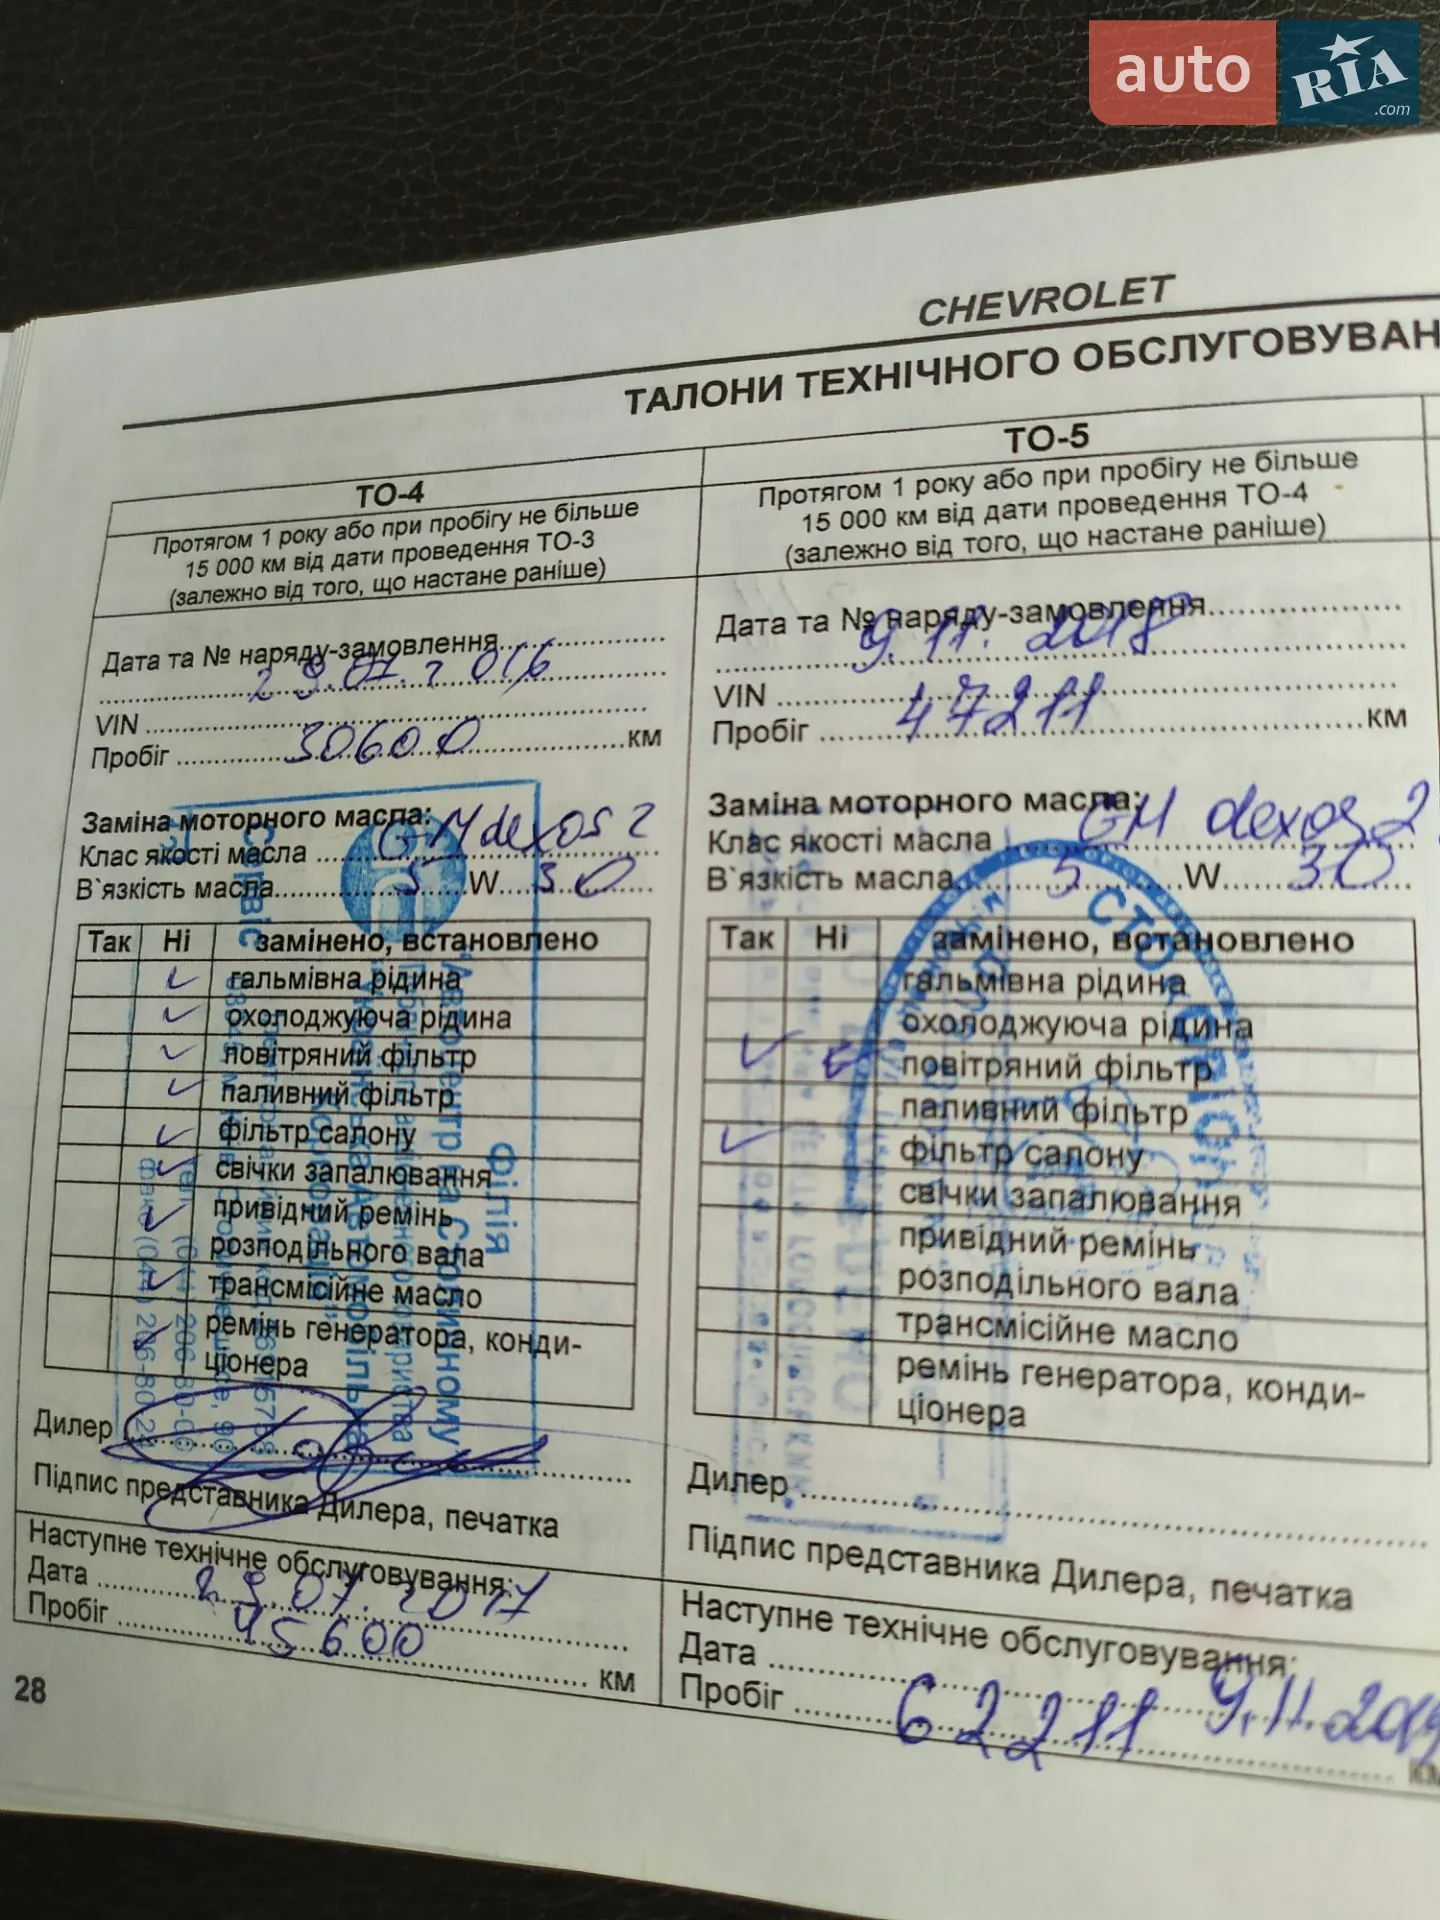 auto RIA .com
CHEVROLET
ТАЛОНИ ТЕХНІЧНОГО ОБСЛУГОВУВАН
ТО-4
Протягом 1 року або при пробігу не більше
15 000 км від дати проведення ТО-3
(залежно від того, що настане раніше)
Дата та № наряду-замовлення
29.07.2016
VIN
Пробіг 30600 км
Заміна моторного масла:
Клас якості масла GM dexos 2
В`язкість масла 5 W 30
Так Ні замінено, встановлено
гальмівна рідина
охолоджуюча рідина
повітряний фільтр
паливний фільтр
фільтр салону
свічки запалювання
привідний ремінь
розподільного вала
трансмісійне масло
ремінь генератора, конди-
ціонера
Дилер
Підпис представника Дилера, печатка
Наступне технічне обслуговування:
Дата 29.07.2017
Пробіг 45600 км
28
ТО-5
Протягом 1 року або при пробігу не більше
15 000 км від дати проведення ТО-4
(залежно від того, що настане раніше)
Дата та № наряду-замовлення
9.11.2018
VIN
Пробіг 47211 км
Заміна моторного масла:
Клас якості масла GM dexos 2
В`язкість масла 5 W 30
Так Ні замінено, встановлено
гальмівна рідина
охолоджуюча рідина
повітряний фільтр
паливний фільтр
фільтр салону
свічки запалювання
привідний ремінь
розподільного вала
трансмісійне масло
ремінь генератора, конди-
ціонера
Дилер
Підпис представника Дилера, печатка
Наступне технічне обслуговування:
Дата 9.11.2019
Пробіг 62211 км
Сервіс
Філія
"Автоцентр на Столичному